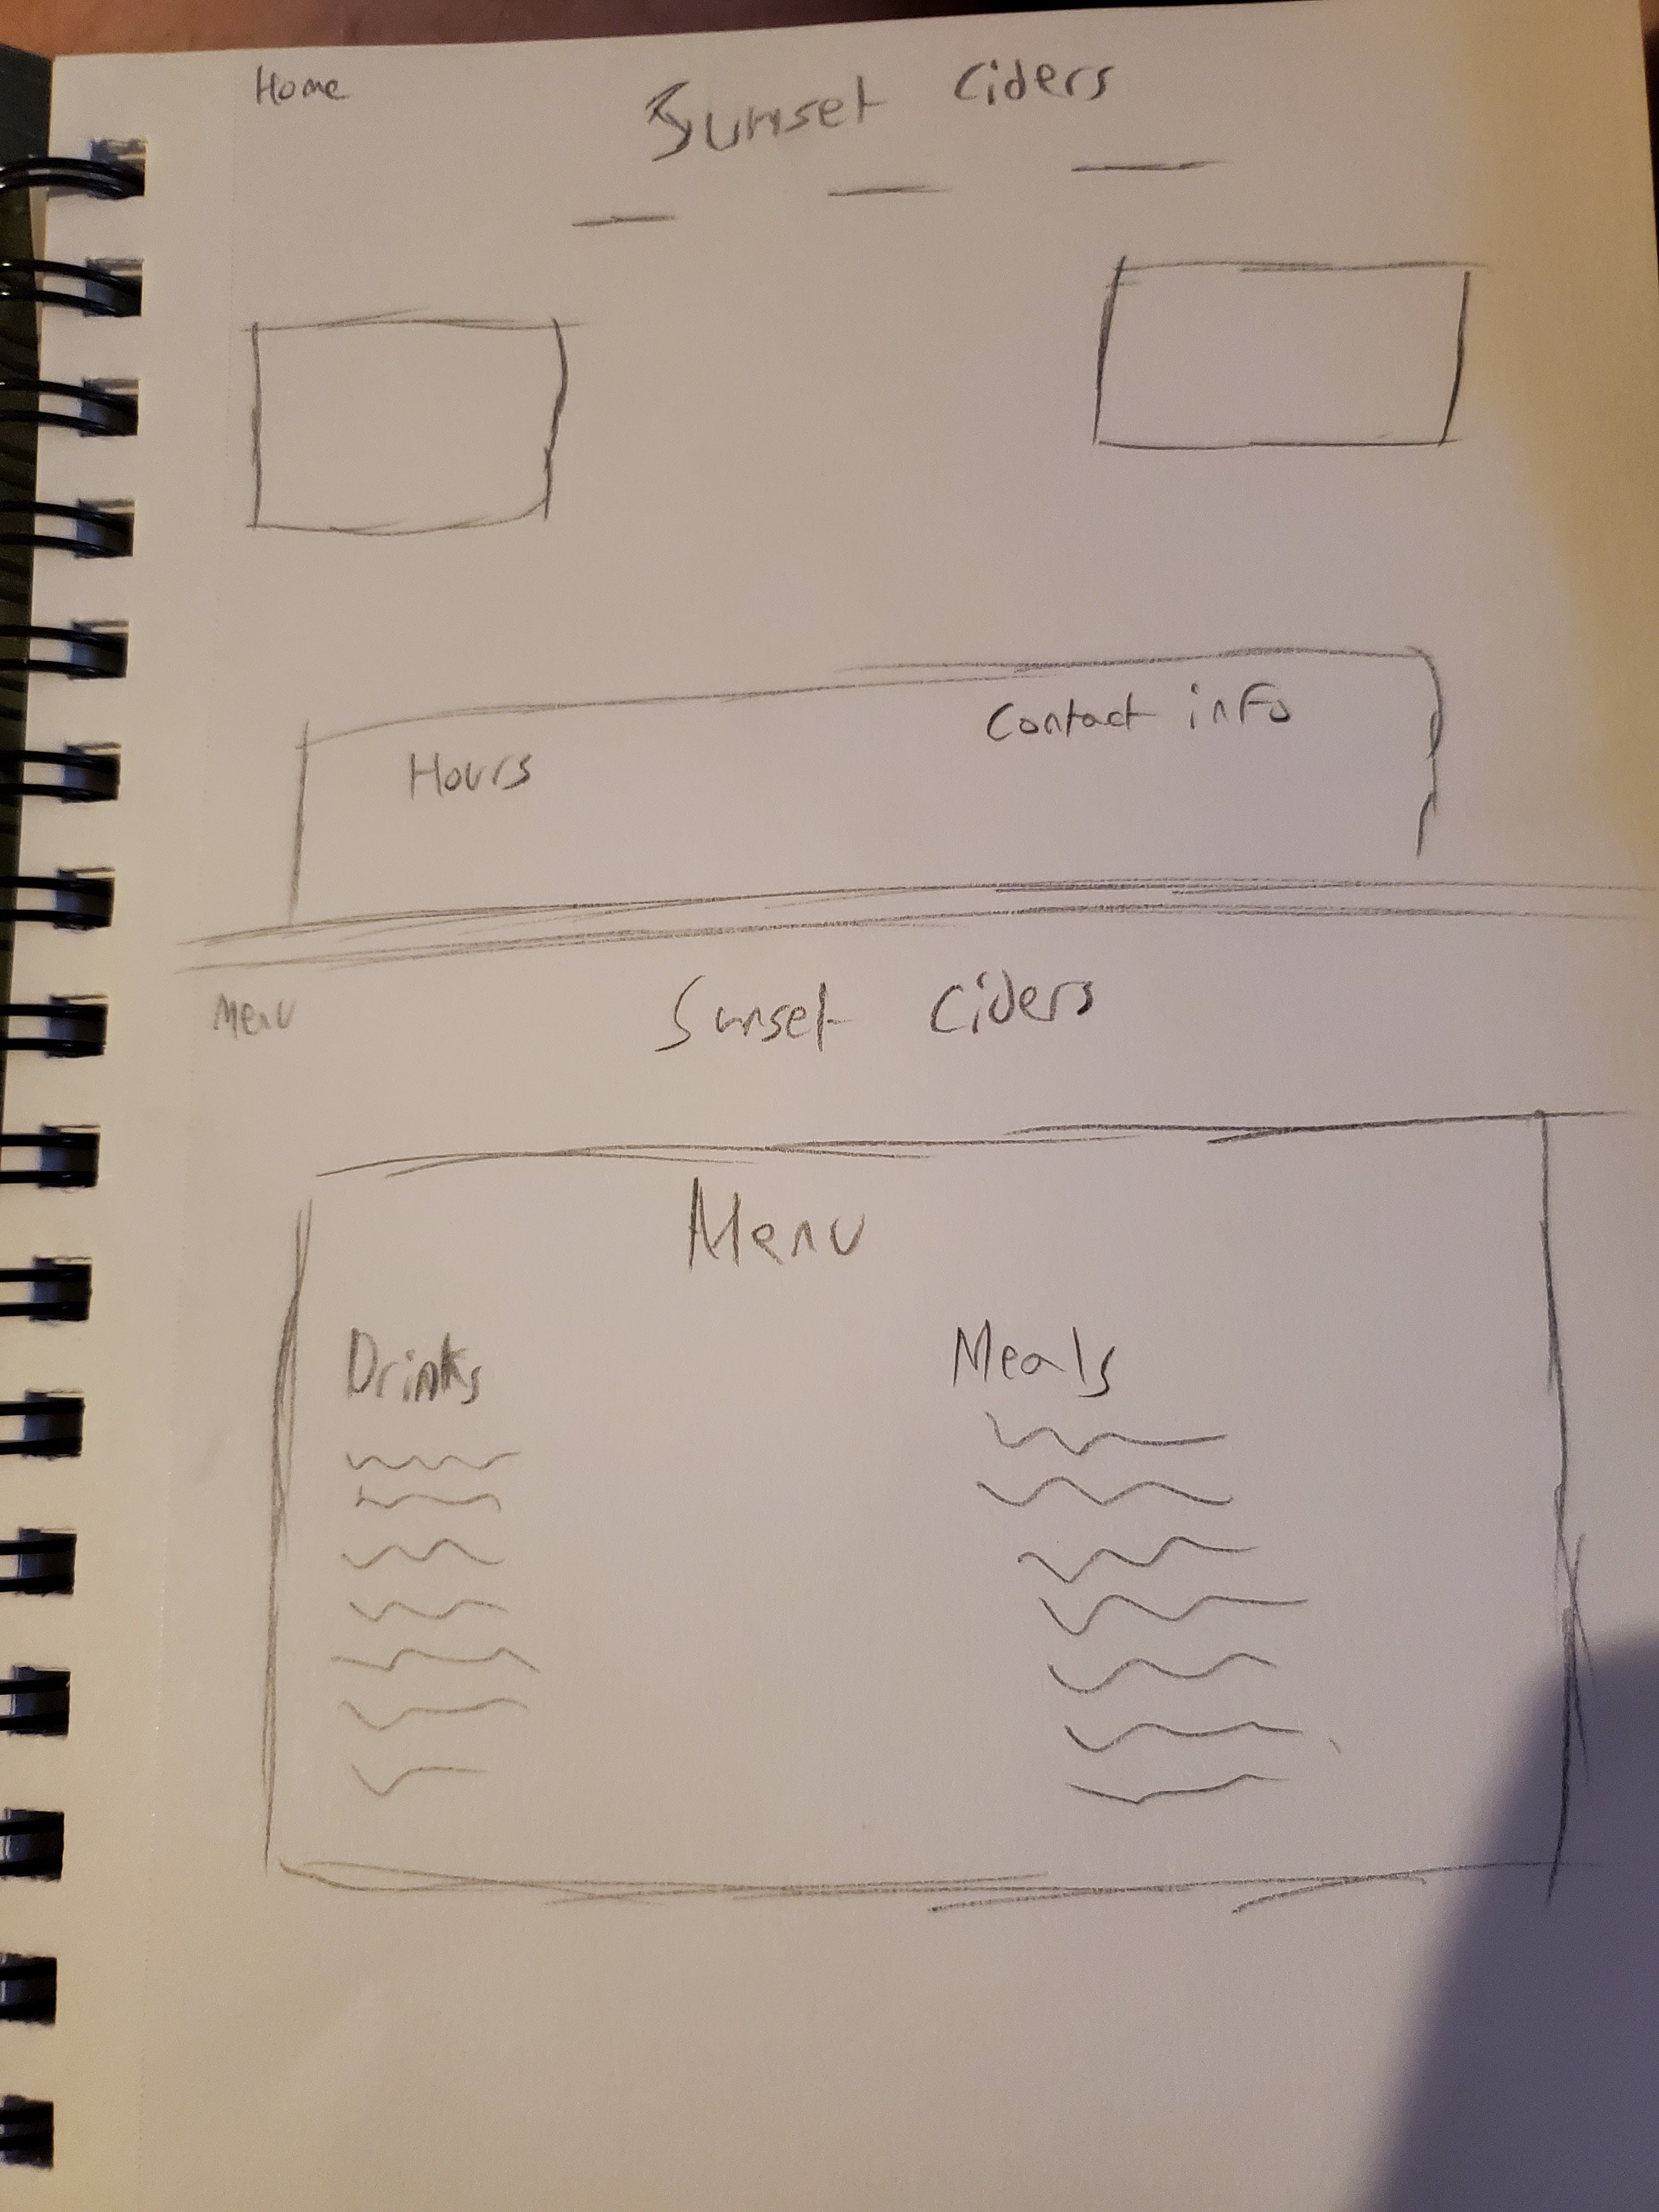 Home
Sunset Ciders
Hours
Contact info
Menu
Sunset Ciders
Menu
Drinks
Meals